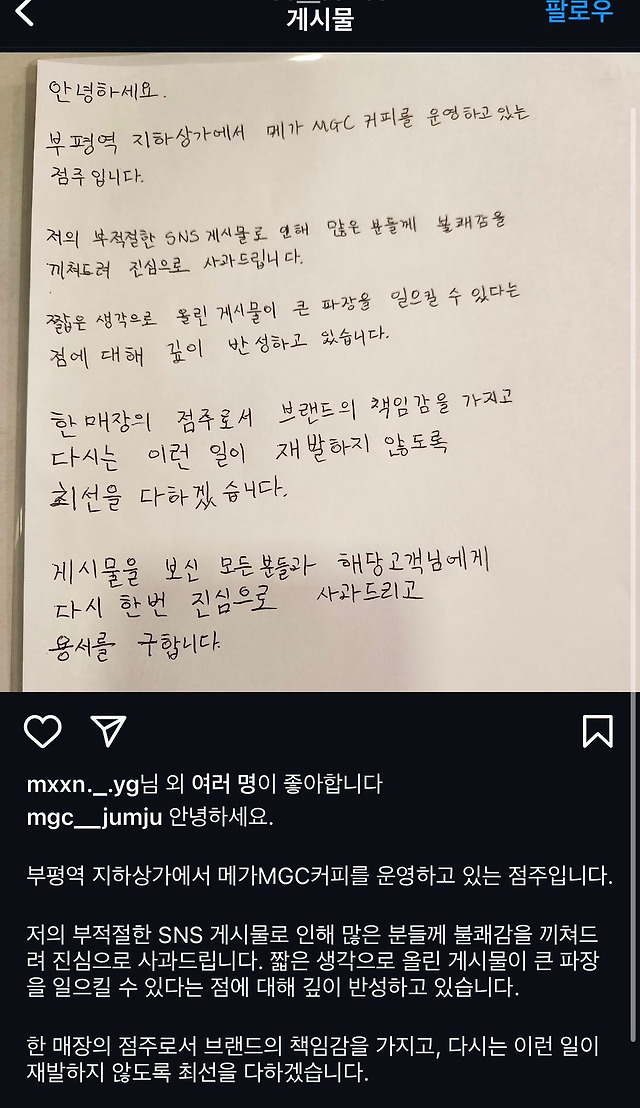 게시물
팔로우
안녕하세요.
부평역 지하상가에서 메가 MGC 커피를 운영하고 있는
점주 입니다.
저의 부적절한 SNS 게시물로 인해 많은 분들께 불쾌감을
끼쳐드려 진심으로 사과드립니다.
짧은 생각으로 올린 게시물이 큰 파장을 일으킬 수 있다는
점에 대해 깊이 반성하고 있습니다.
한 매장의 점주로서 브랜드의 책임감을 가지고
다시는 이런 일이 재발하지 않도록
최선을 다하겠습니다.
게시물을 보신 모든분들과 해당고객님에게
다시 한번 진심으로 사과드리고
용서를 구합니다.
mxxn._.yg님 외 여러 명이 좋아합니다
mgc__jumju 안녕하세요.
부평역 지하상가에서 메가MGC커피를 운영하고 있는 점주입니다.
저의 부적절한 SNS 게시물로 인해 많은 분들께 불쾌감을 끼쳐드
려 진심으로 사과드립니다. 짧은 생각으로 올린 게시물이 큰 파장
을 일으킬 수 있다는 점에 대해 깊이 반성하고 있습니다.
한 매장의 점주로서 브랜드의 책임감을 가지고, 다시는 이런 일이
재발하지 않도록 최선을 다하겠습니다.